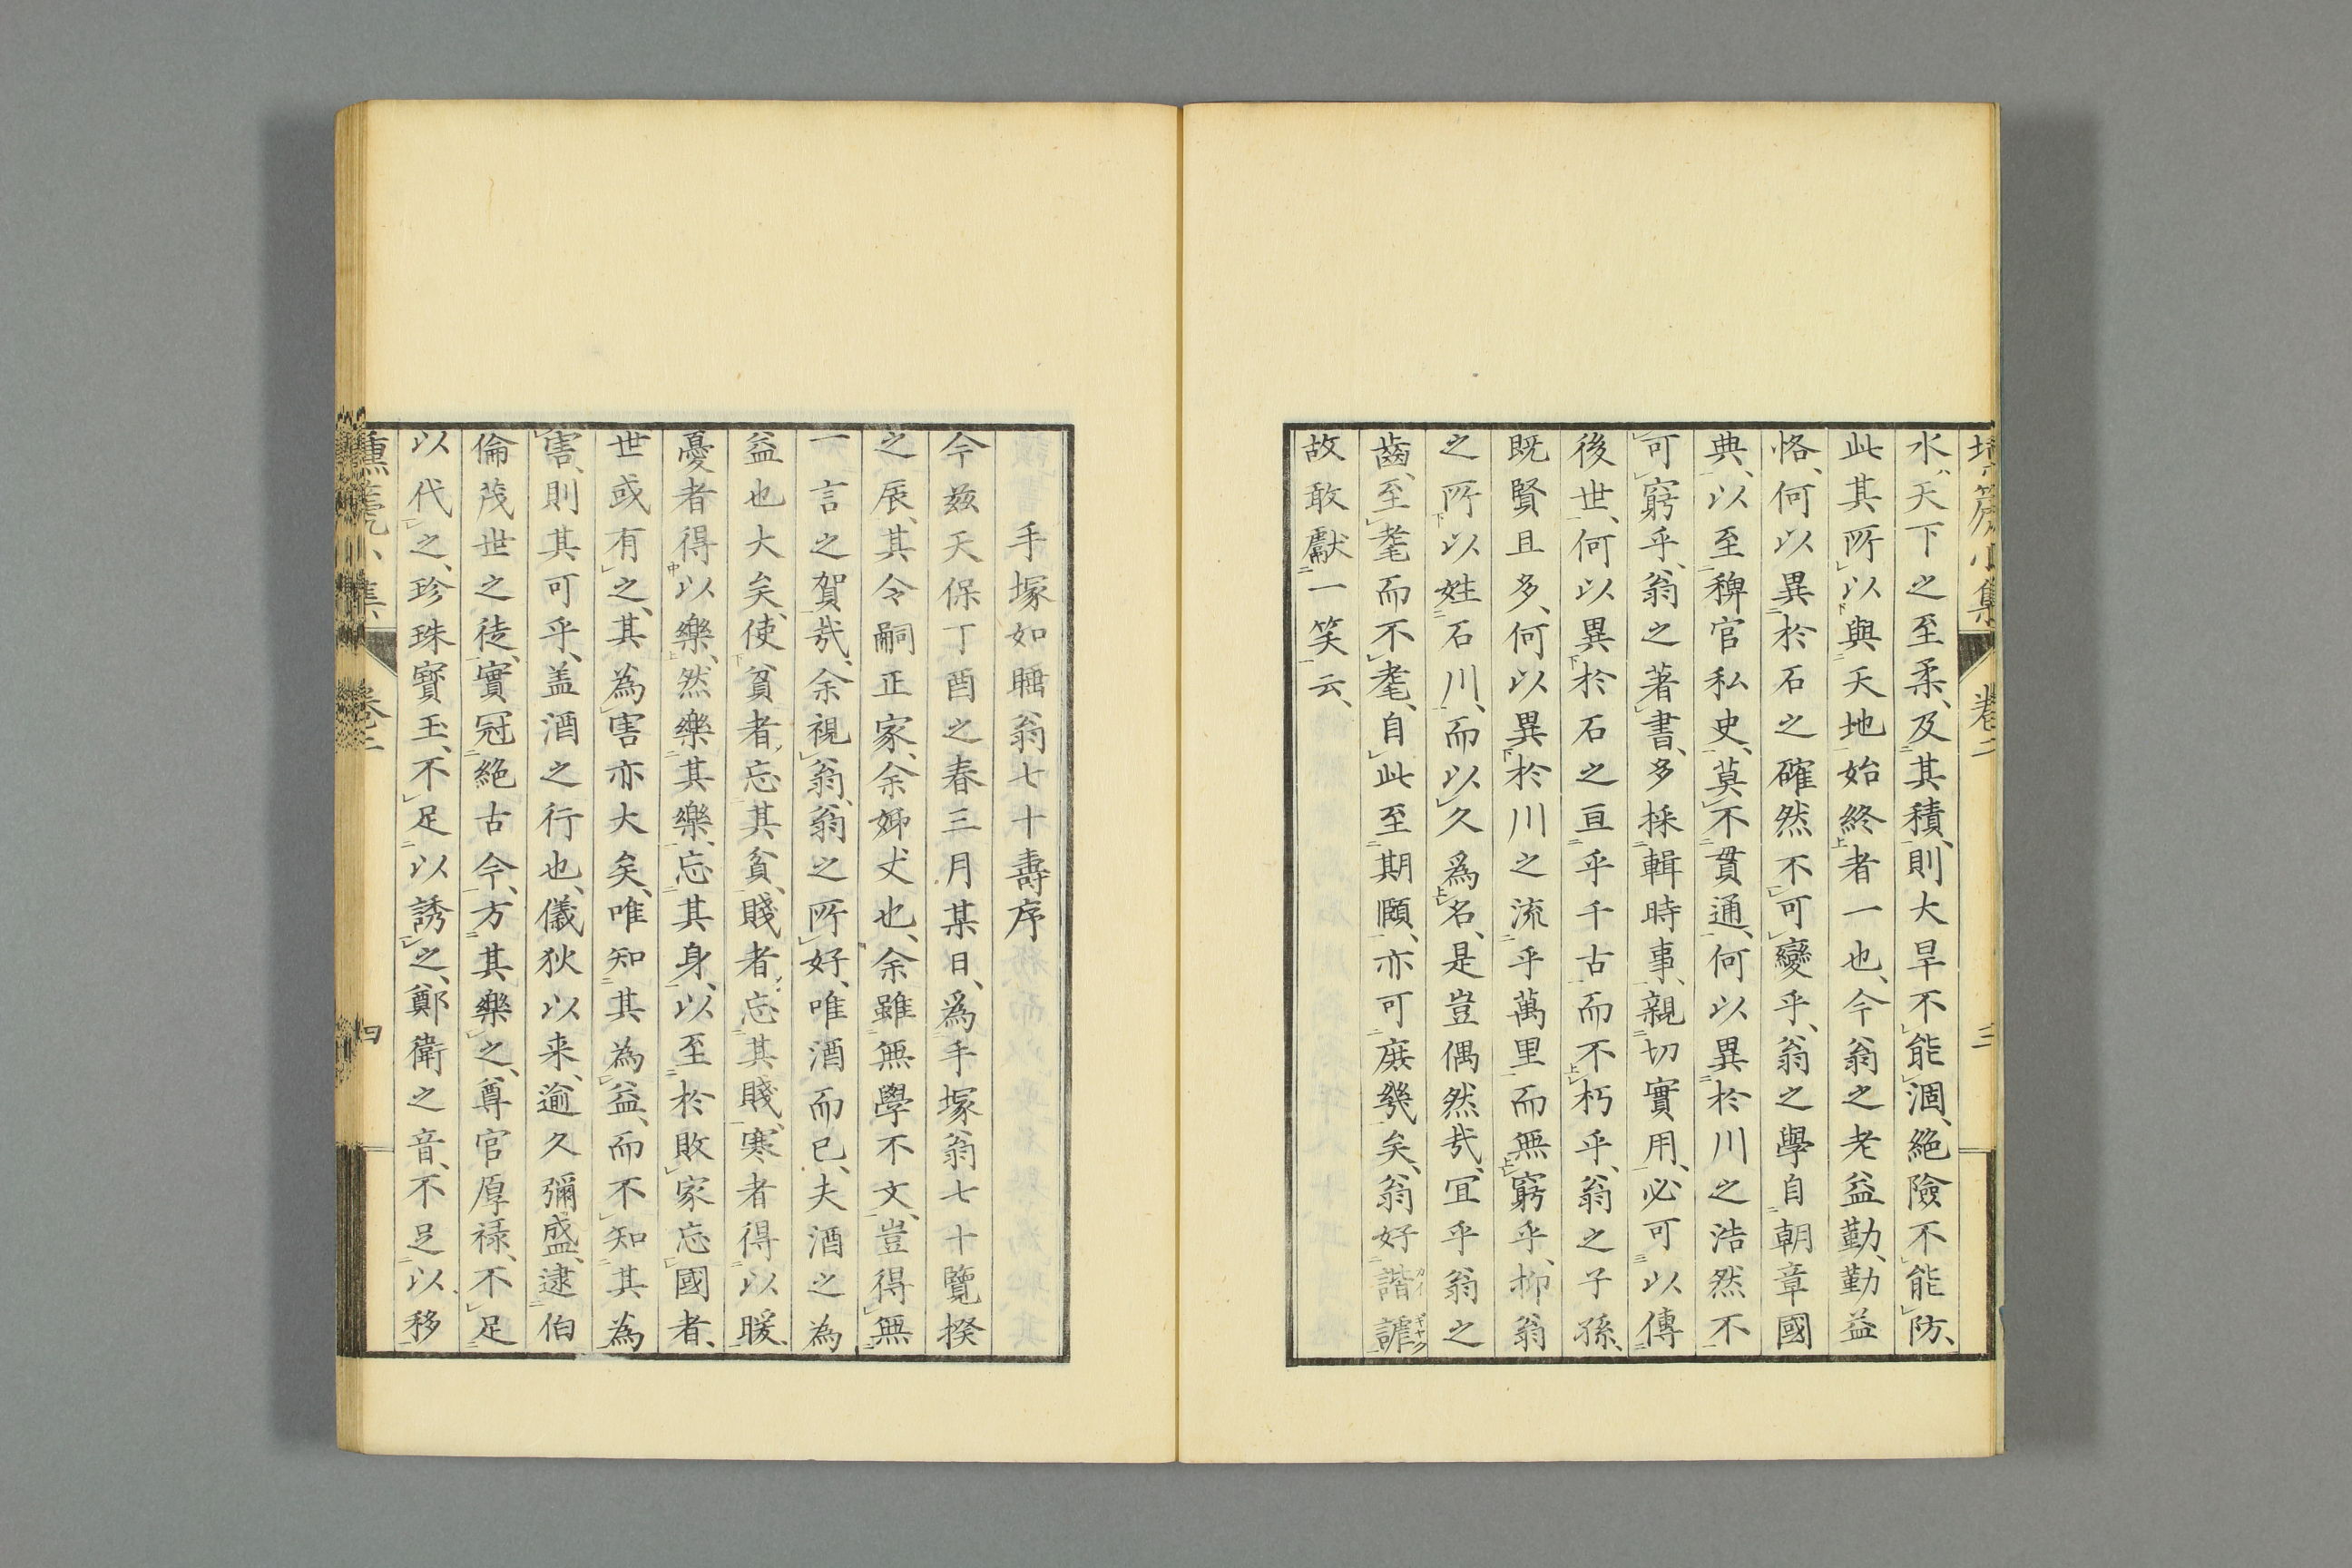 水、天下之至柔、及其積、則大旱不能涸、絶險不能防、
此其所以與天地始終者一也、今翁之老益勤、勤益
恪、何以異於石之確然不可變乎、翁之學自朝章國
典、以至稗官私史、莫不貫通、何以異於川之浩然不
可窮乎、翁之著書、多採輯時事、親切實用、必可以傳
後世、何以異於石之亘乎千古而不朽乎、翁之子孫、
既賢且多、何以異於川之流乎萬里而無窮乎、抑翁
之所以姓石川、而以久爲名、是豈偶然哉、宜乎翁之
齒、至耄而不耄、自此至期頤、亦可庶幾矣、翁好諧謔
故敢獻一笑云、
手塚如睡翁七十壽序
今玆天保丁酉之春三月某日、爲手塚翁七十覽揆
之辰、其令嗣正家、余姊丈也、余雖無學不文、豈得無
一言之賀哉、余視翁、翁之所好、唯酒而已、夫酒之為
益也大矣、使貧者忘其貧、賤者忘其賤、寒者得以暖、
憂者得以樂、然樂其樂、忘其身、以至於敗家忘國者、
世或有之、其為害亦大矣、唯知其為益、而不知其為
害、則其可乎、盖酒之行也、儀狄以来、逾久彌盛、逮伯
倫茂世之徒、實冠絶古今、方其樂之、尊官厚禄、不足
以代之、珍珠寳玉、不足以誘之、鄭衛之音、不足以移
卷二
三
四